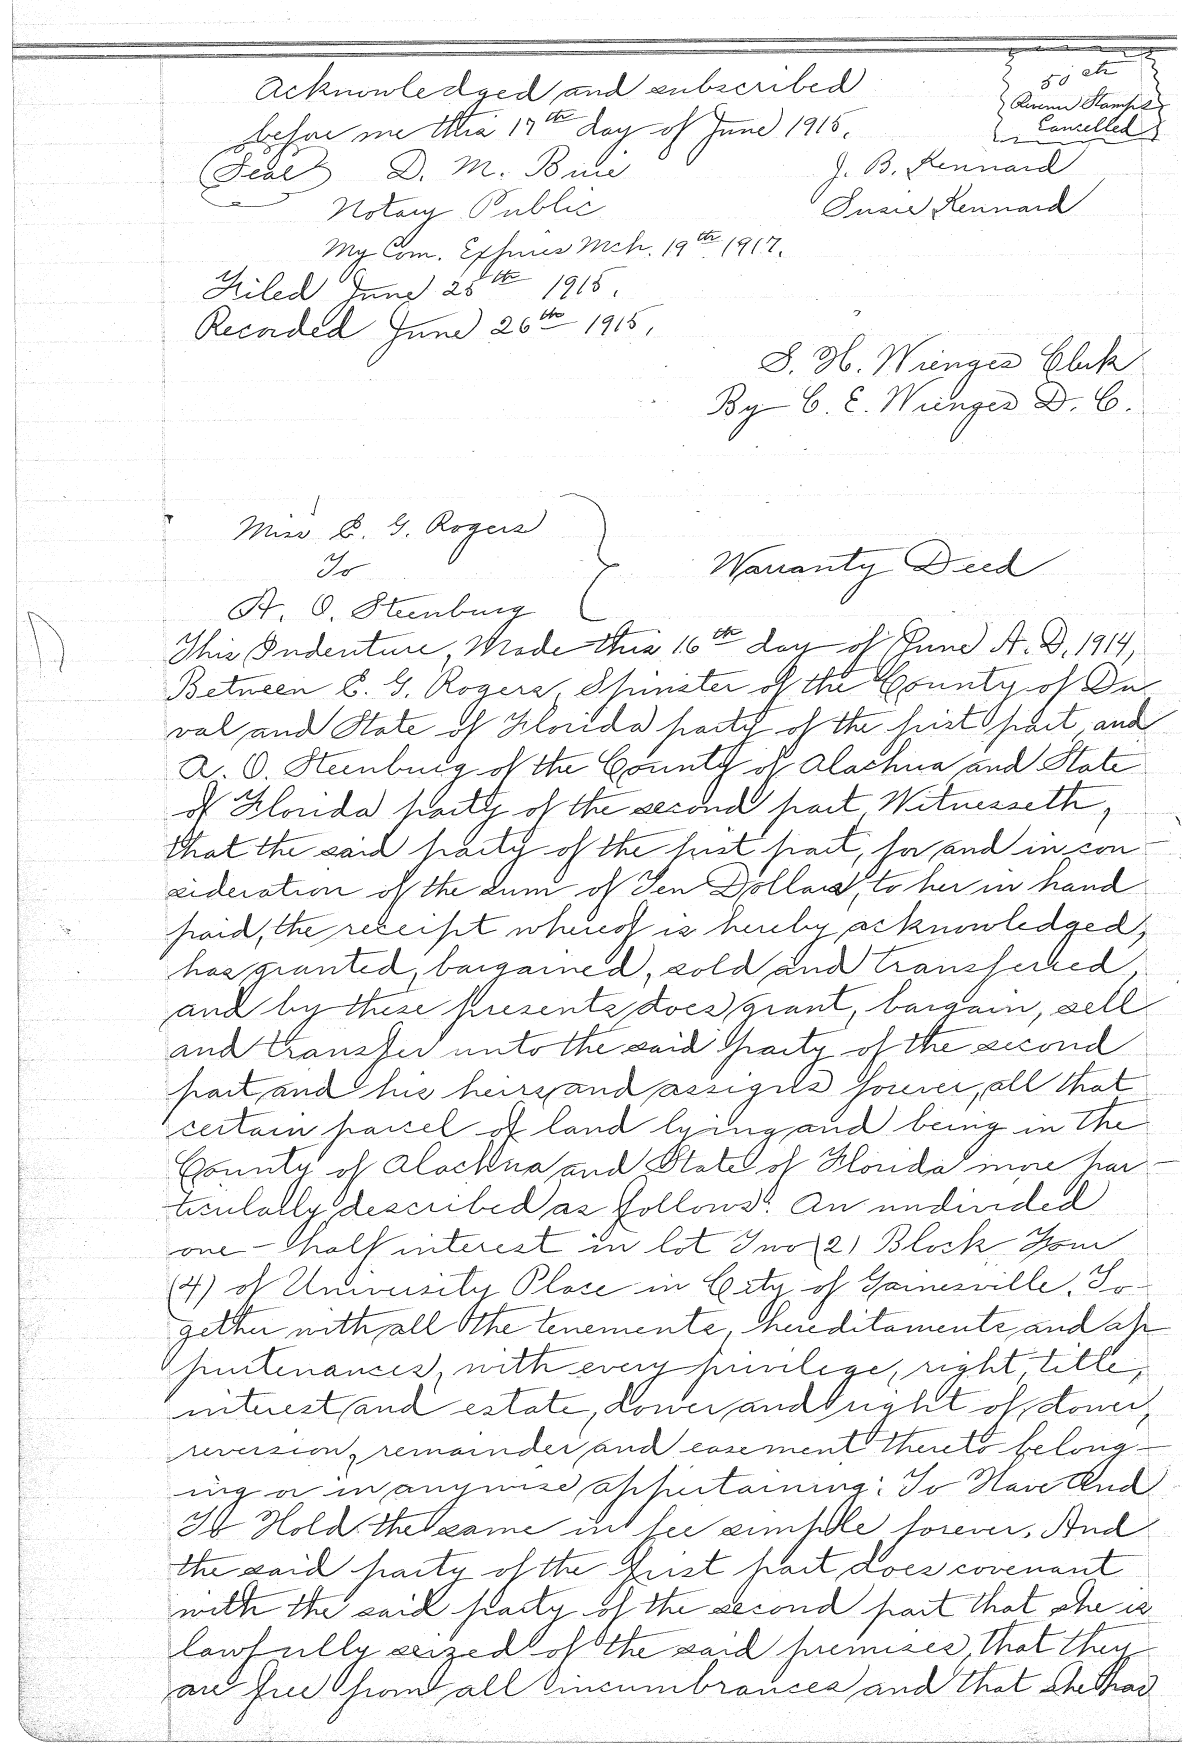 50 cts
Revenue Stamps
Cancelled
Acknowledged and subscribed
before me this 17th day of June 1915.
(Seal) D. M. J. B. Kennard
Notary Public Susie Kennard
My Com. Expires Mch. 19th 1917.
Filed June 25th 1915.
Recorded June 26th 1915.
S. H. Wienges Clerk
By C. E. Wienges D. C.
Miss E. G. Rogers
To
A. O. Steenburg
Warranty Deed
This Indenture, Made this 16th day of June A. D. 1914,
Between E. G. Rogers, Spinster of the County of Du
val and State of Florida party of the first part, and
A. O. Steenburg of the County of Alachua and State
of Florida party of the second part, Witnesseth,
that the said party of the first part, for and in con-
sideration of the sum of Ten Dollars, to her in hand
paid, the receipt whereof is hereby acknowledged,
has granted, bargained, sold and transferred,
and by these presents does grant, bargain, sell
and transfer unto the said party of the second
part and his heirs and assigns forever, all that
certain parcel of land lying and being in the
County of Alachua and State of Florida more par-
ticularly described as follows: An undivided
one-half interest in lot Two (2) Block Four
(4) of University Place in City of Gainesville. To-
gether with all the tenements, hereditaments and ap
purtenances, with every privilege, right, title,
interest and estate, dower and right of dower,
reversion, remainder and easement thereto belong-
ing or in anywise appertaining: To Have And
To Hold the same in fee simple forever. And
the said party of the first part does covenant
with the said party of the second part that she is
lawfully seized of the said premises, that they
are free from all incumbrances and that she has